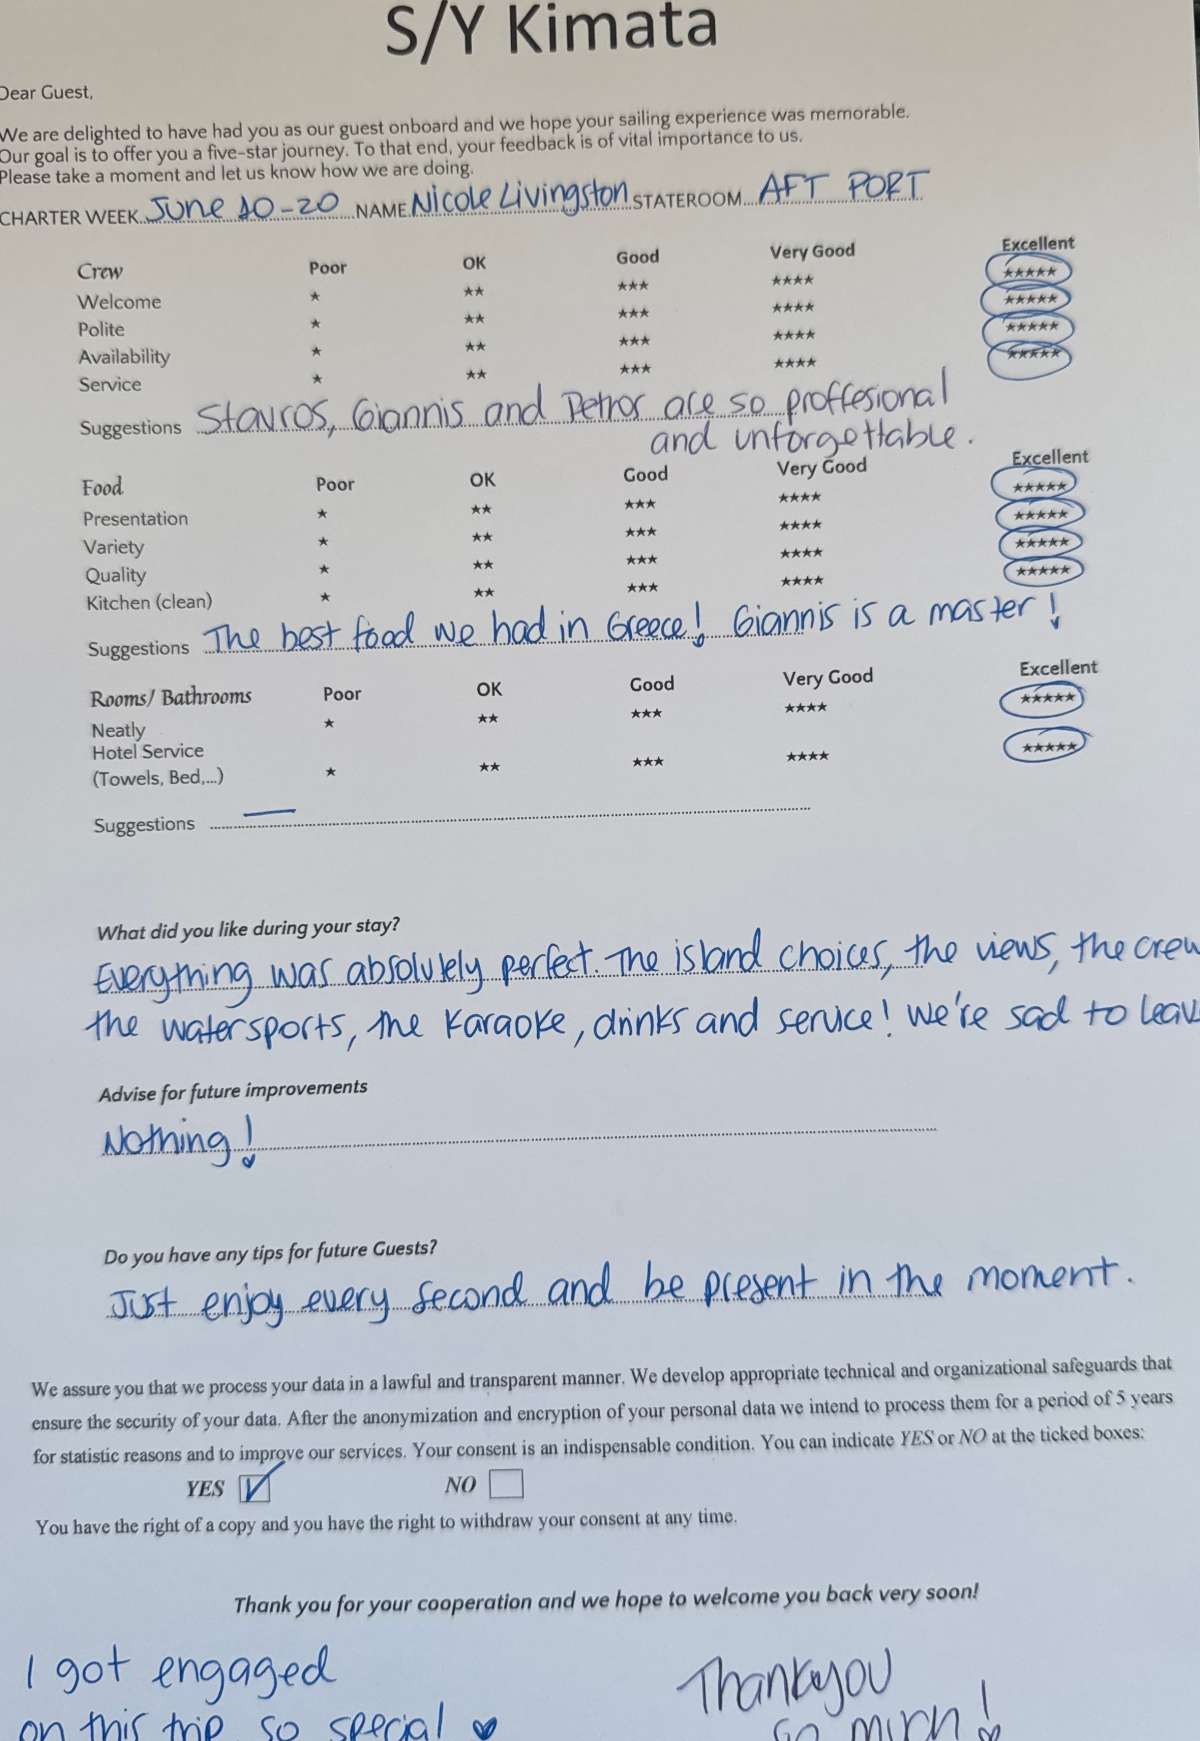 S/Y Kimata
Dear Guest,
We are delighted to have had you as our guest onboard and we hope your sailing experience was memorable.
Our goal is to offer you a five-star journey. To that end, your feedback is of vital importance to us.
Please take a moment and let us know how we are doing.
CHARTER WEEK June 20-20 NAME Nicole Livingston STATEROOM AFT PORT
Crew Poor OK Good Very Good Excellent
Welcome ★ ★★ ★★★ ★★★★ ★★★★★
Polite ★ ★★ ★★★ ★★★★ ★★★★★
Availability ★ ★★ ★★★ ★★★★ ★★★★★
Service ★ ★★ ★★★ ★★★★ ★★★★★
Suggestions Stavros, Giannis and Petros are so proffesional
and unforgettable.
Food Poor OK Good Very Good Excellent
Presentation ★ ★★ ★★★ ★★★★ ★★★★★
Variety ★ ★★ ★★★ ★★★★ ★★★★★
Quality ★ ★★ ★★★ ★★★★ ★★★★★
Kitchen (clean) ★ ★★ ★★★ ★★★★ ★★★★★
Suggestions The best food we had in Greece! Giannis is a master!
Rooms/ Bathrooms Poor OK Good Very Good Excellent
Neatly ★ ★★ ★★★ ★★★★ ★★★★★
Hotel Service
(Towels, Bed,...) ★ ★★ ★★★ ★★★★ ★★★★★
Suggestions —
What did you like during your stay?
Everything was absolutely perfect. The island choices, the views, the crew
the watersports, the karaoke, drinks and service! We're sad to leav
Advise for future improvements
Nothing!
Do you have any tips for future Guests?
Just enjoy every second and be present in the moment.
We assure you that we process your data in a lawful and transparent manner. We develop appropriate technical and organizational safeguards that
ensure the security of your data. After the anonymization and encryption of your personal data we intend to process them for a period of 5 years
for statistic reasons and to improve our services. Your consent is an indispensable condition. You can indicate YES or NO at the ticked boxes:
YES NO
You have the right of a copy and you have the right to withdraw your consent at any time.
Thank you for your cooperation and we hope to welcome you back very soon!
I got engaged
on this trip so special ♥
Thankyou
so much!